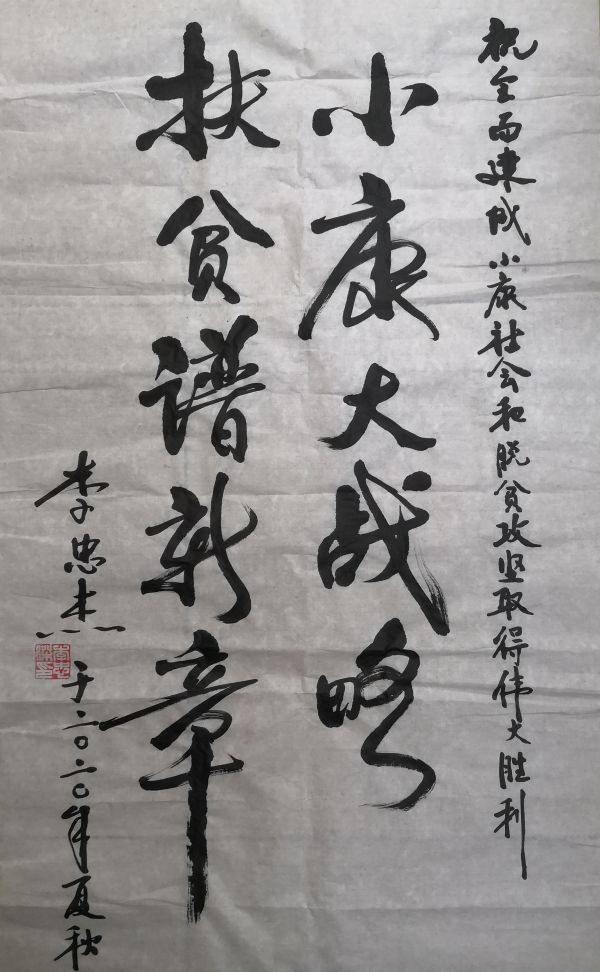 祝全面建成小康社会和脱贫攻坚取得伟大胜利
小康大战略
扶贫谱新章
李忠杰
于二〇二〇年夏秋